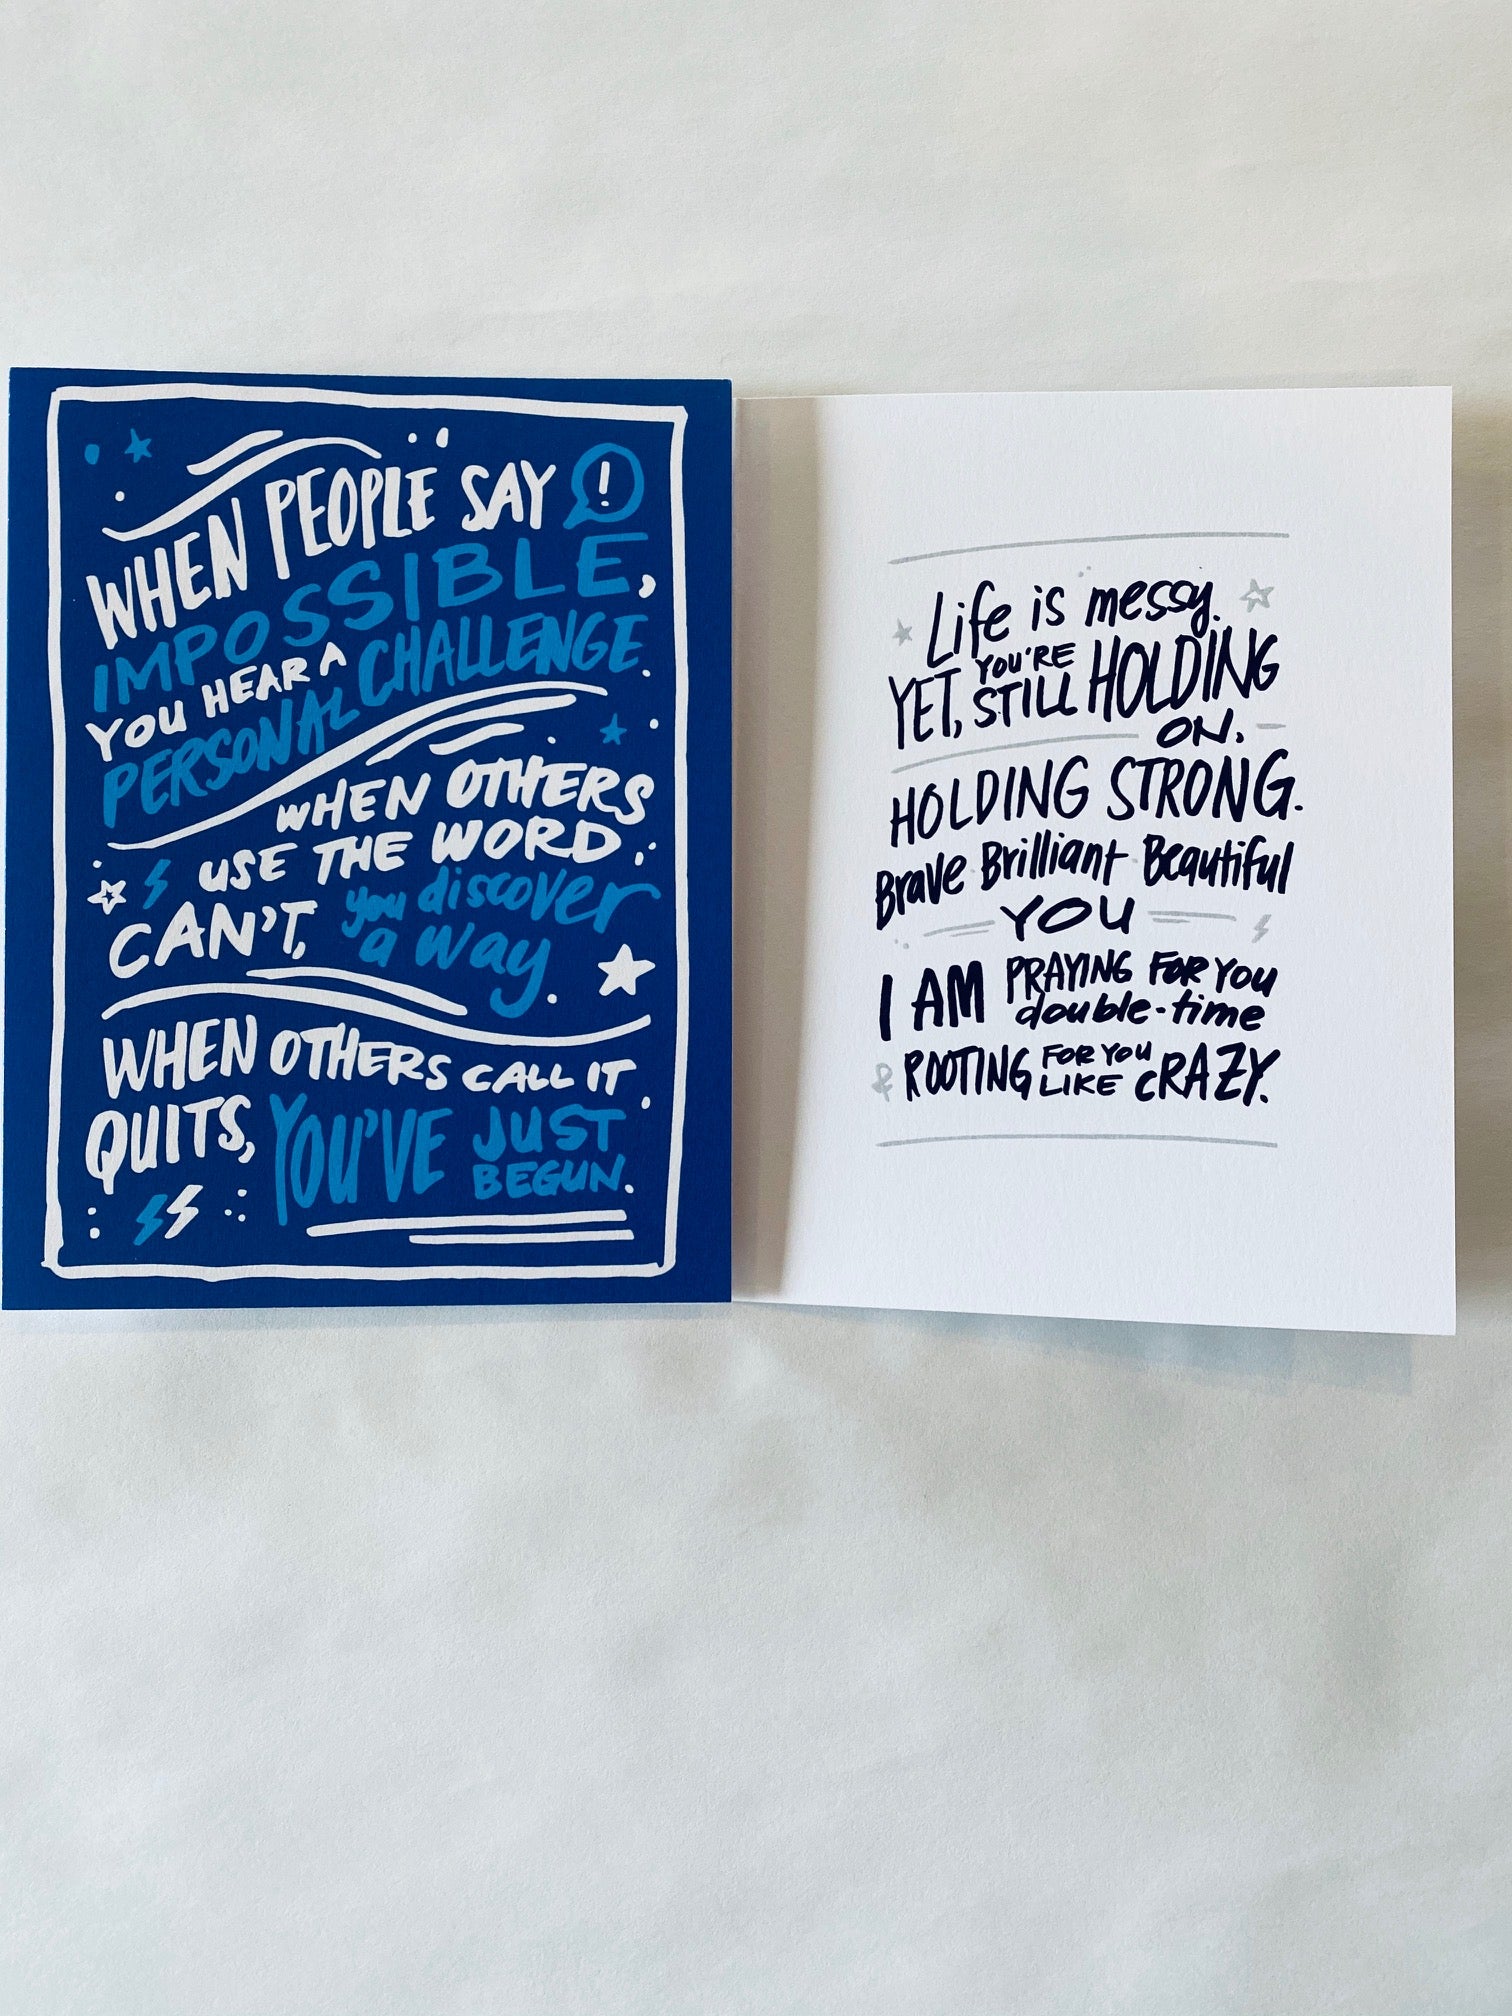 WHEN PEOPLE SAY !
IMPOSSIBLE,
YOU HEAR A
PERSONAL CHALLENGE.
WHEN OTHERS
USE THE WORD
CAN'T, you discover
a way.
WHEN OTHERS CALL IT
QUITS, YOU'VE JUST
BEGUN.
Life is messy.
YET, YOU'RE
STILL HOLDING
ON.
HOLDING STRONG.
Brave Brilliant Beautiful
YOU
I AM PRAYING FOR YOU
double-time
& ROOTING FOR YOU
LIKE CRAZY.